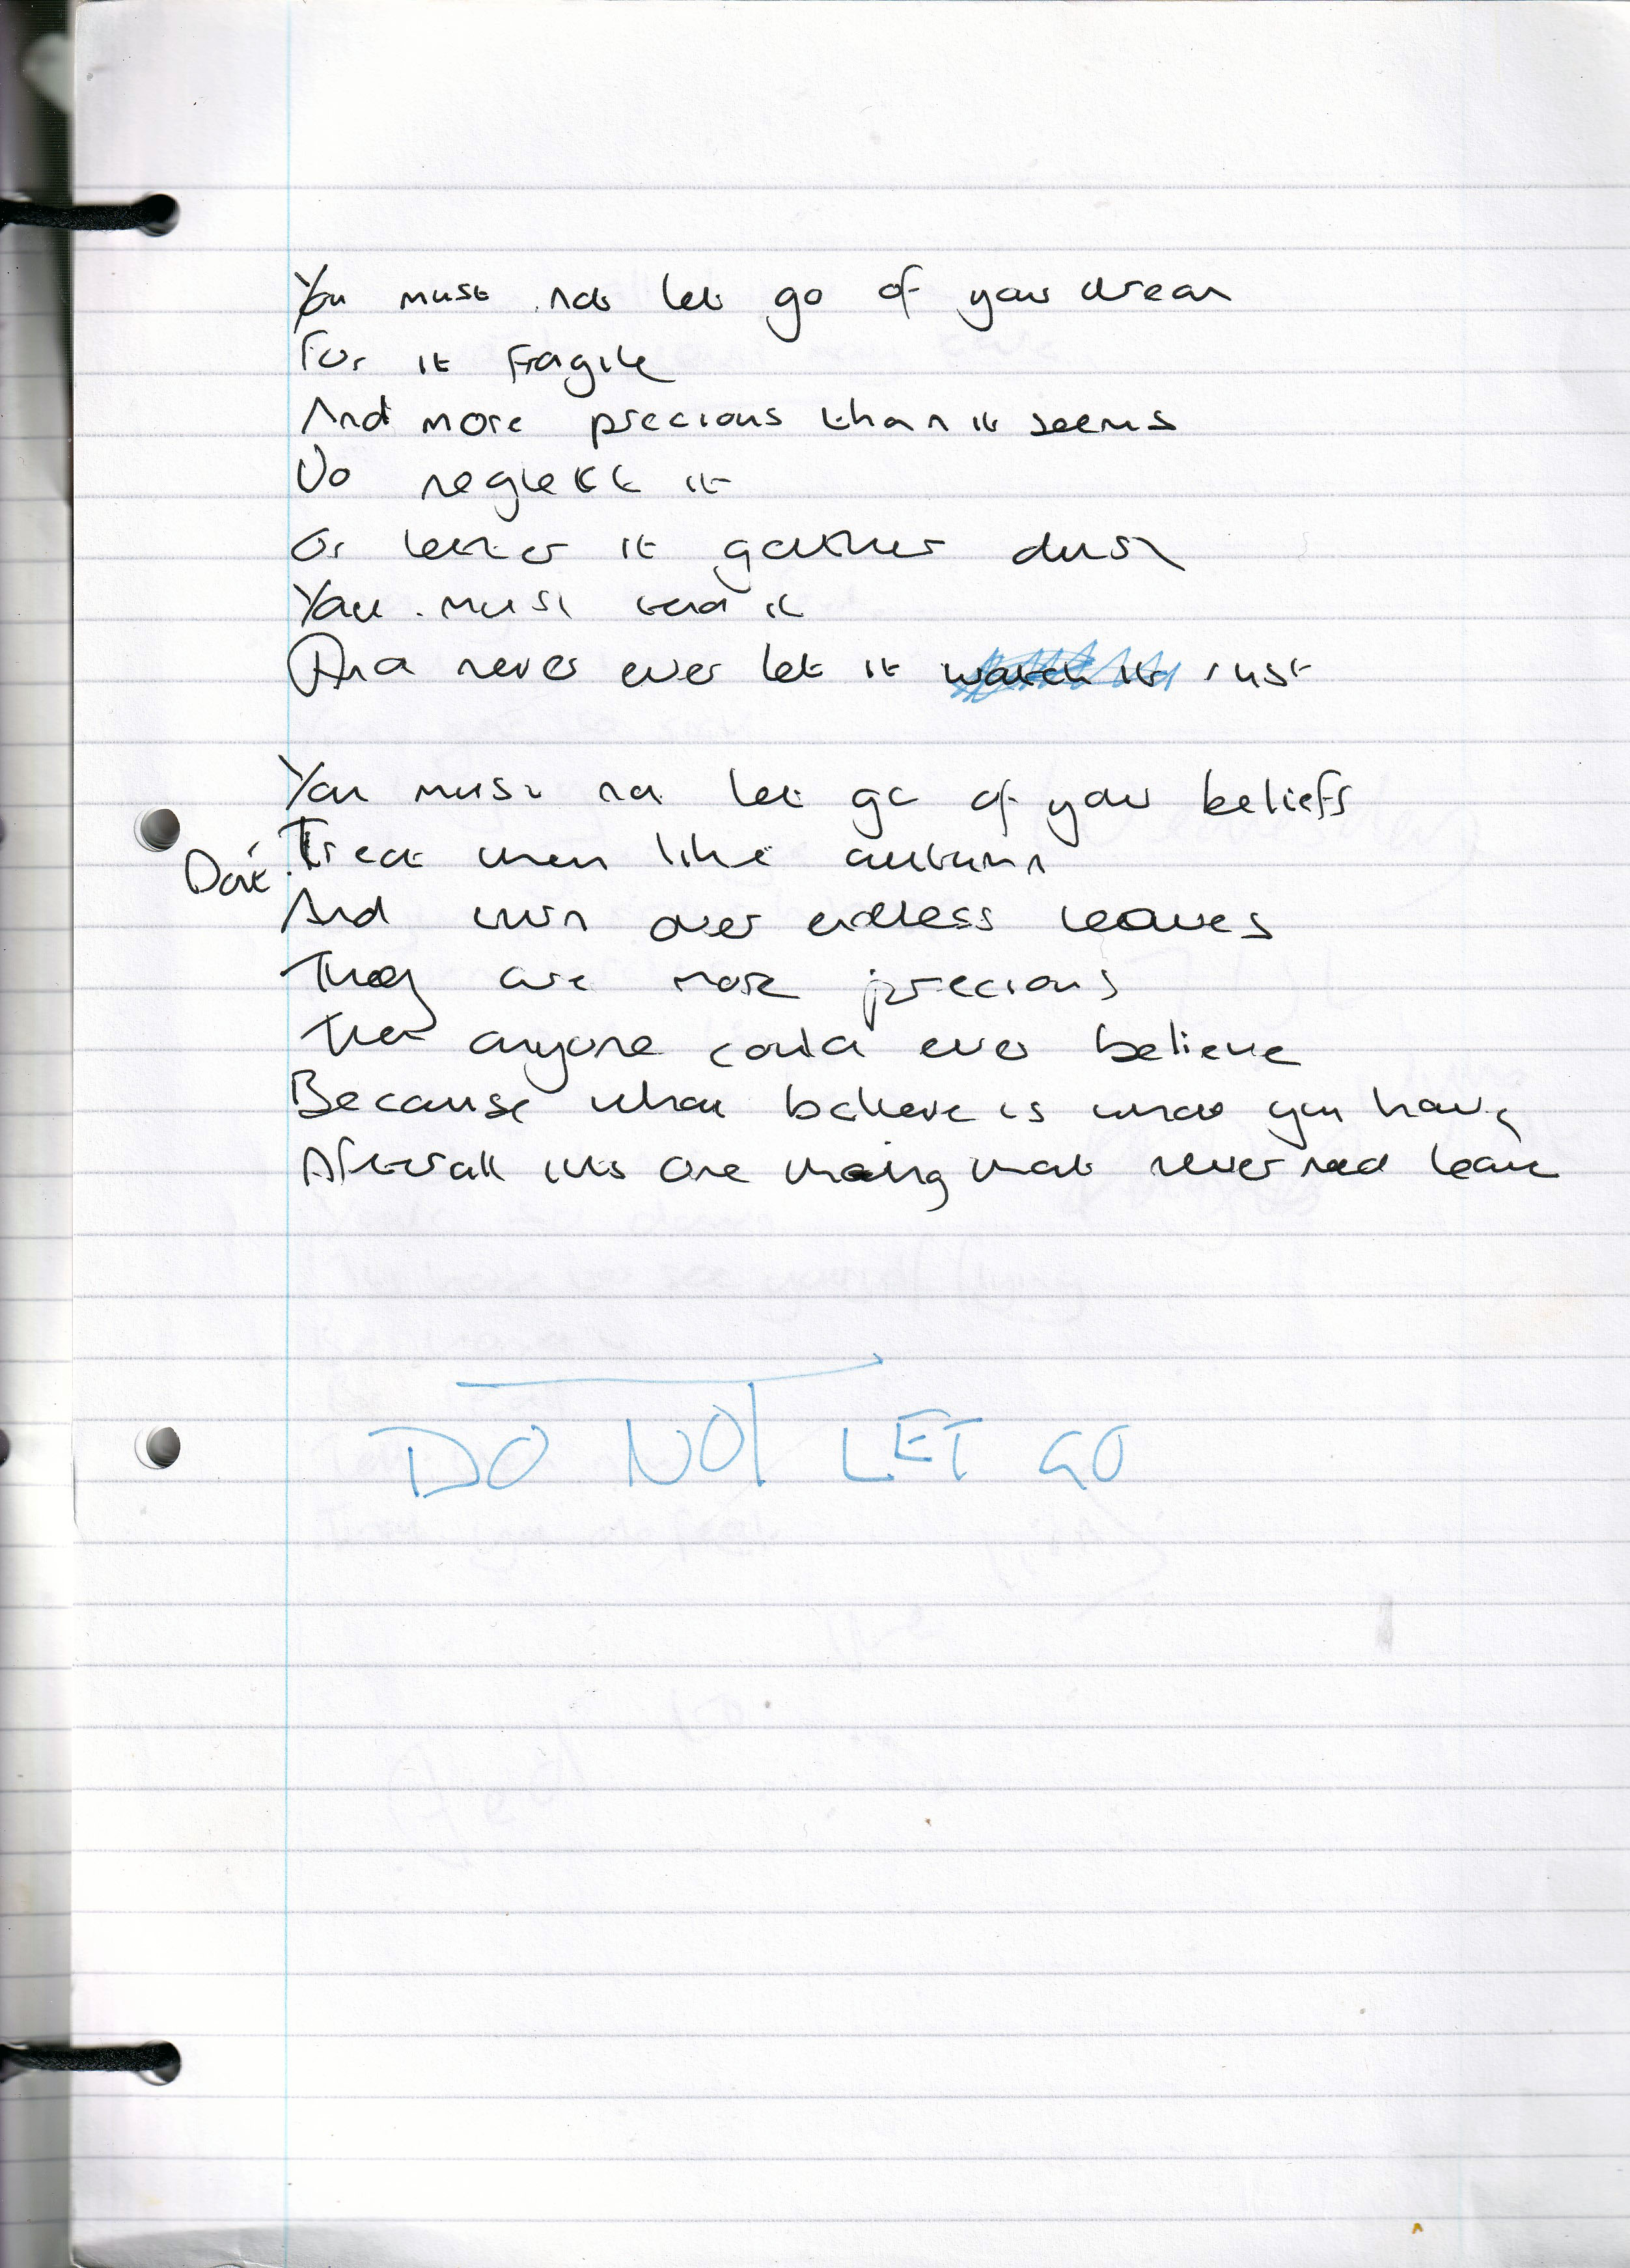 You must not let go of your dream
For it fragile
And more precious than it seems
Do neglect it
Or letter it gather dust
You must tend it
And never ever let it watch it rust
You must not let go of your beliefs
Dont Treat them like autumn
And turn over endless leaves
They are more precious
That anyone could ever believe
Because what believe is what you have
Afterall its one thing that never need leave
DO NOT LET GO